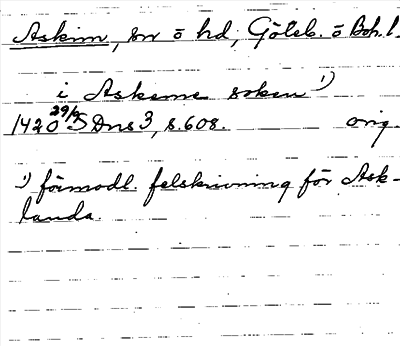 Askim, sn o hd, Göteb. o Boh. l.
i Askeme soken 1)
1420 29/9 SDns 3, s. 608. orig
1) förmodl. felskrivning för Ask-
landa.